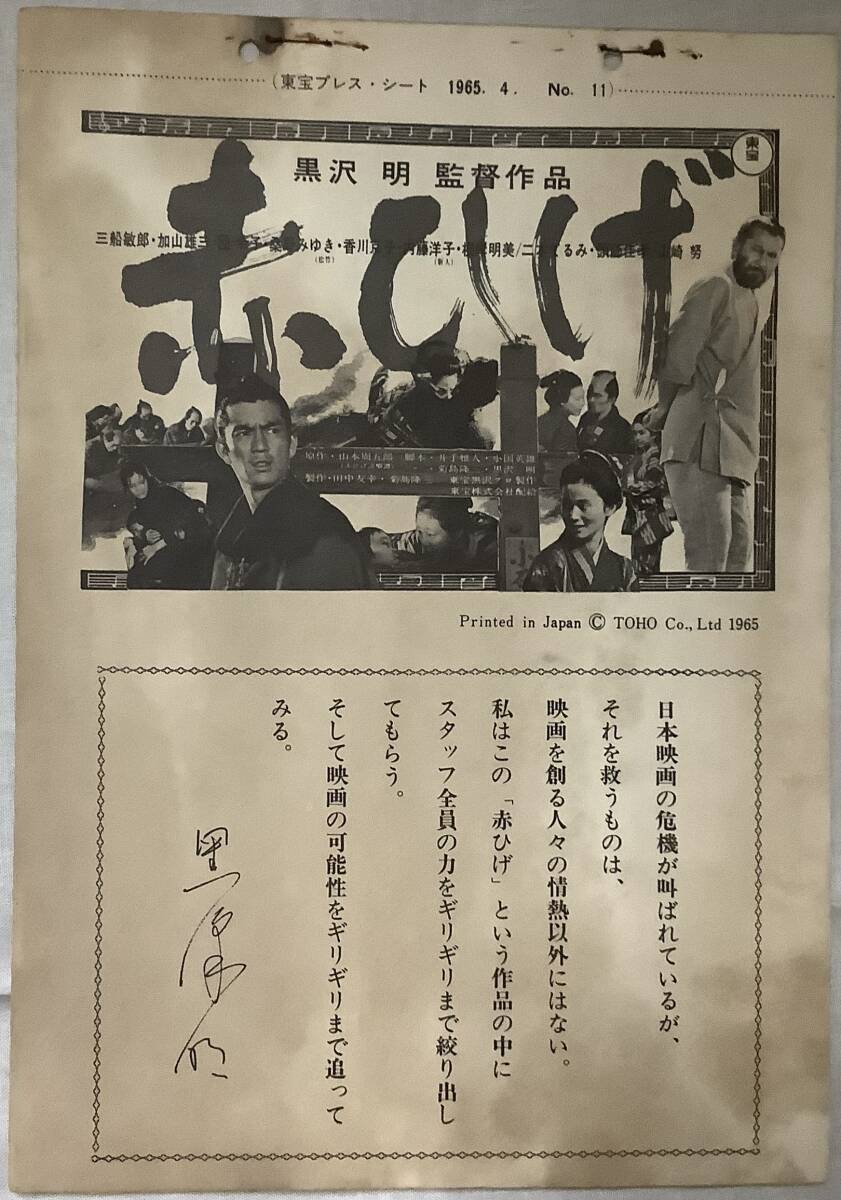 (東宝プレス・シート 1965. 4. No. 11)
東宝
黒沢 明 監督作品
赤ひげ
三船敏郎・加山雄三 みゆき・香川京子・内藤洋子・根岸明美/二木てるみ・頭師佳孝・山崎 努
(松竹) (新人)
原作・山本周五郎 脚本・井手雅人・小国英雄
菊島隆三・黒沢 明
製作・田中友幸・菊島隆三 東宝黒沢プロ製作
東宝株式会社配給
小石
Printed in Japan © TOHO Co., Ltd 1965
日本映画の危機が叫ばれているが、
それを救うものは、
映画を創る人々の情熱以外にはない。
私はこの「赤ひげ」という作品の中に
スタッフ全員の力をギリギリまで絞り出し
てもらう。
そして映画の可能性をギリギリまで追って
みる。
黒澤明